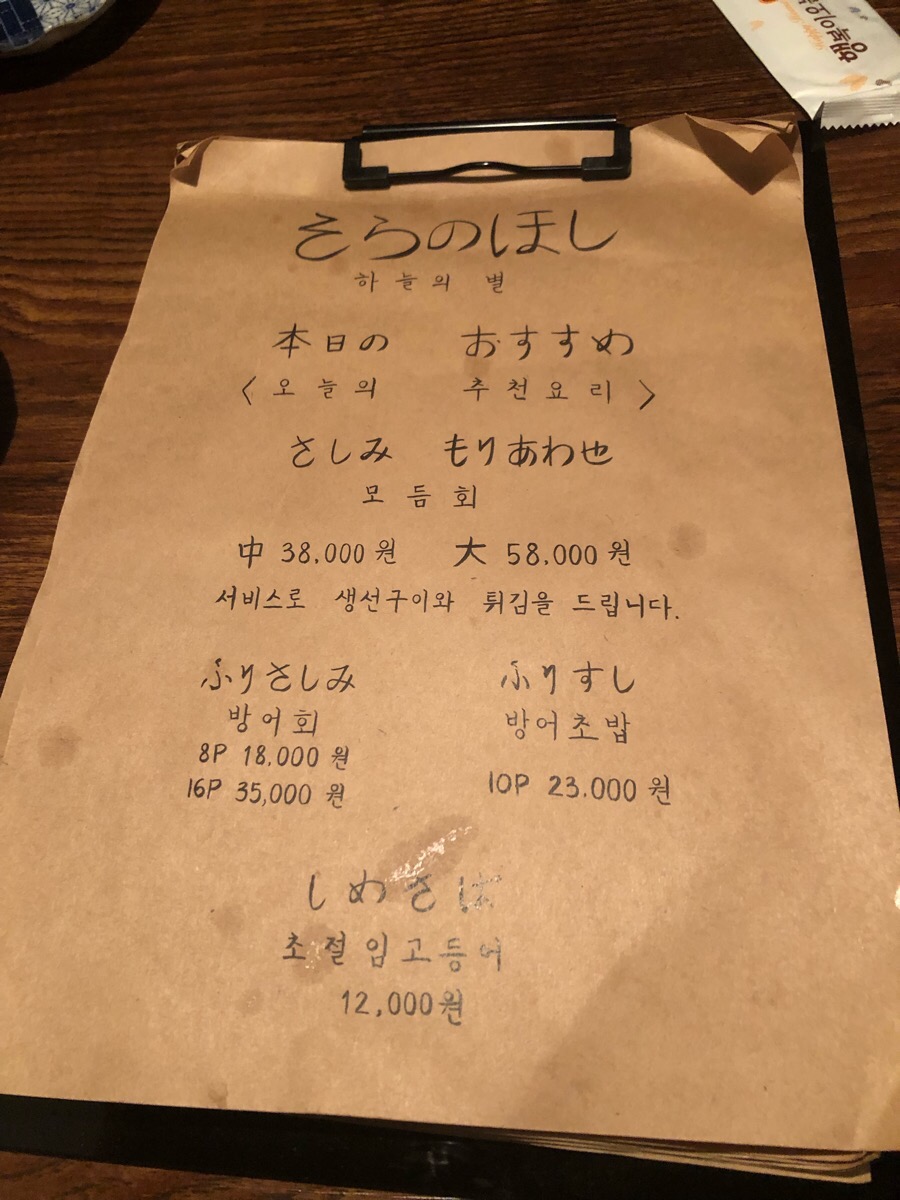 そらのほし
하늘의 별
本日の おすすめ
〈오늘의 추천요리〉
さしみ もりあわせ
모듬회
中 38,000원 大 58,000원
서비스로 생선구이와 튀김을 드립니다.
ふりさしみ ふりすし
방어회 방어초밥
8P 18,000원
16P 35,000원 10P 23.000원
しめさば
초절임고등어
12,000원